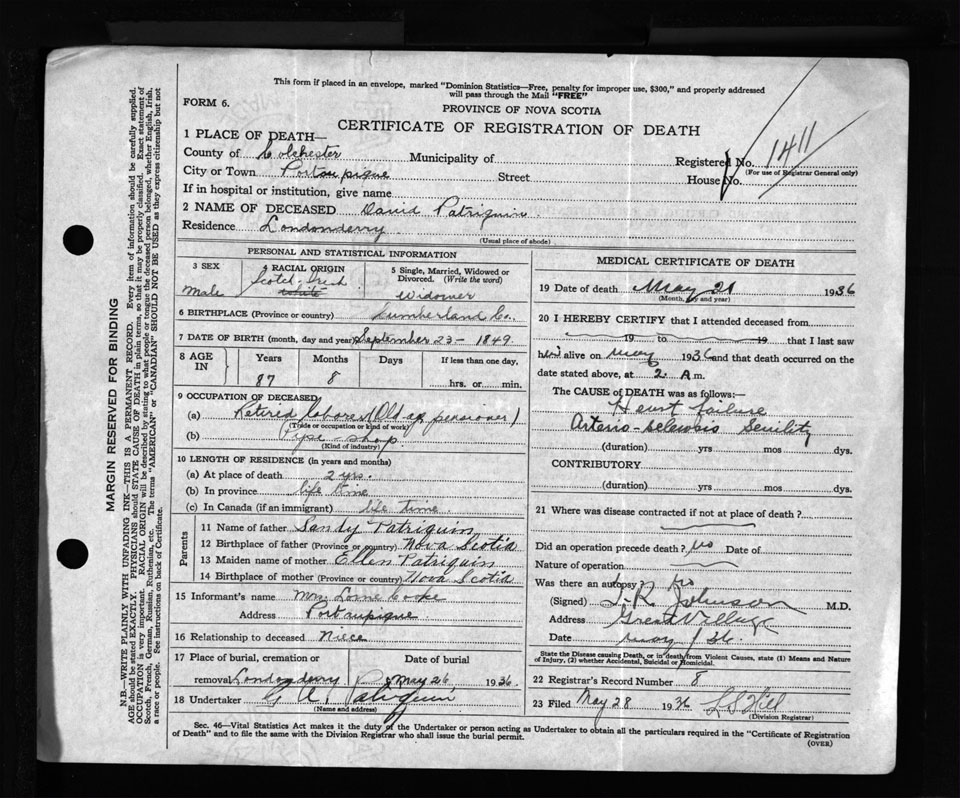 This form if placed in an envelope, marked "Dominion Statistics—Free, penalty for improper use, $300," and properly addressed
will pass through the Mail "FREE"
FORM 6.
PROVINCE OF NOVA SCOTIA
CERTIFICATE OF REGISTRATION OF DEATH
1 PLACE OF DEATH—
County of Colchester Municipality of Registered No. 1411
(For use of Registrar General only)
City or Town Portaupique Street House No.
If in hospital or institution, give name
2 NAME OF DECEASED David Patriquin
Residence Londonderry
(Usual place of abode)
PERSONAL AND STATISTICAL INFORMATION
3 SEX
Male
4 RACIAL ORIGIN
Scotch-Irish
white
5 Single, Married, Widowed or
Divorced. (Write the word)
Widower
6 BIRTHPLACE (Province or country) Cumberland Co.
7 DATE OF BIRTH (month, day and year) September 23 - 1849
8 AGE IN Years Months Days If less than one day,
87 8 hrs. or min.
9 OCCUPATION OF DECEASED
(a) Retired laborer (Old age pensioner)
(Trade or occupation or kind of work)
(b) Pipe - shop
(Kind of industry)
10 LENGTH OF RESIDENCE (in years and months)
(a) At place of death 2 yrs.
(b) In province life time
(c) In Canada (if an immigrant) life time
Parents
11 Name of father Sandy Patriquin
12 Birthplace of father (Province or country) Nova Scotia
13 Maiden name of mother Ellen Patriquin
14 Birthplace of mother (Province or country) Nova Scotia
15 Informant's name Mrs Lorne Cooke
Address Portaupique
16 Relationship to deceased Niece
17 Place of burial, cremation or Date of burial
removal Londonderry May 26 1936.
18 Undertaker G A Patriquin
(Name and address)
MEDICAL CERTIFICATE OF DEATH
19 Date of death May 21 1936
(Month, day and year)
20 I HEREBY CERTIFY that I attended deceased from
19 to 19 that I last saw
him alive on May 1936 and that death occurred on the
date stated above, at 2 A m.
The CAUSE of DEATH was as follows:—
Heart failure
Arterio-sclerosis Senility
(duration) yrs mos dys.
CONTRIBUTORY
(duration) yrs mos dys.
21 Where was disease contracted if not at place of death?
Did an operation precede death? no Date of
Nature of operation
Was there an autopsy no
(Signed) T. R. Johnson M.D.
Address Great Village
Date May / 36.
State the Disease causing Death, or in death from Violent Causes, state (1) Means and Nature
of Injury, (2) whether Accidental, Suicidal or Homicidal.
22 Registrar's Record Number 8
23 Filed May 28 1936 L S Hill
(Division Registrar)
Sec. 46—Vital Statistics Act makes it the duty of the Undertaker or person acting as Undertaker to obtain all the particulars required in the "Certificate of Registration
of Death" and to file the same with the Division Registrar who shall issue the burial permit.
(OVER)
MARGIN RESERVED FOR BINDING
N.B.—WRITE PLAINLY WITH UNFADING INK—THIS IS A PERMANENT RECORD. Every item of information should be carefully supplied.
AGE should be stated EXACTLY. PHYSICIANS should STATE CAUSE OF DEATH in plain terms, so that it may be properly classified. Exact statement of
OCCUPATION is very important. RACIAL ORIGIN will be described by stating to what people or tongue the deceased person belonged, whether English, Irish,
Scotch, French, German, Russian, Ruthenian, etc. The terms "AMERICAN" or "CANADIAN" SHOULD NOT BE USED as they express citizenship but not
a race or people. See instructions on back of Certificate.